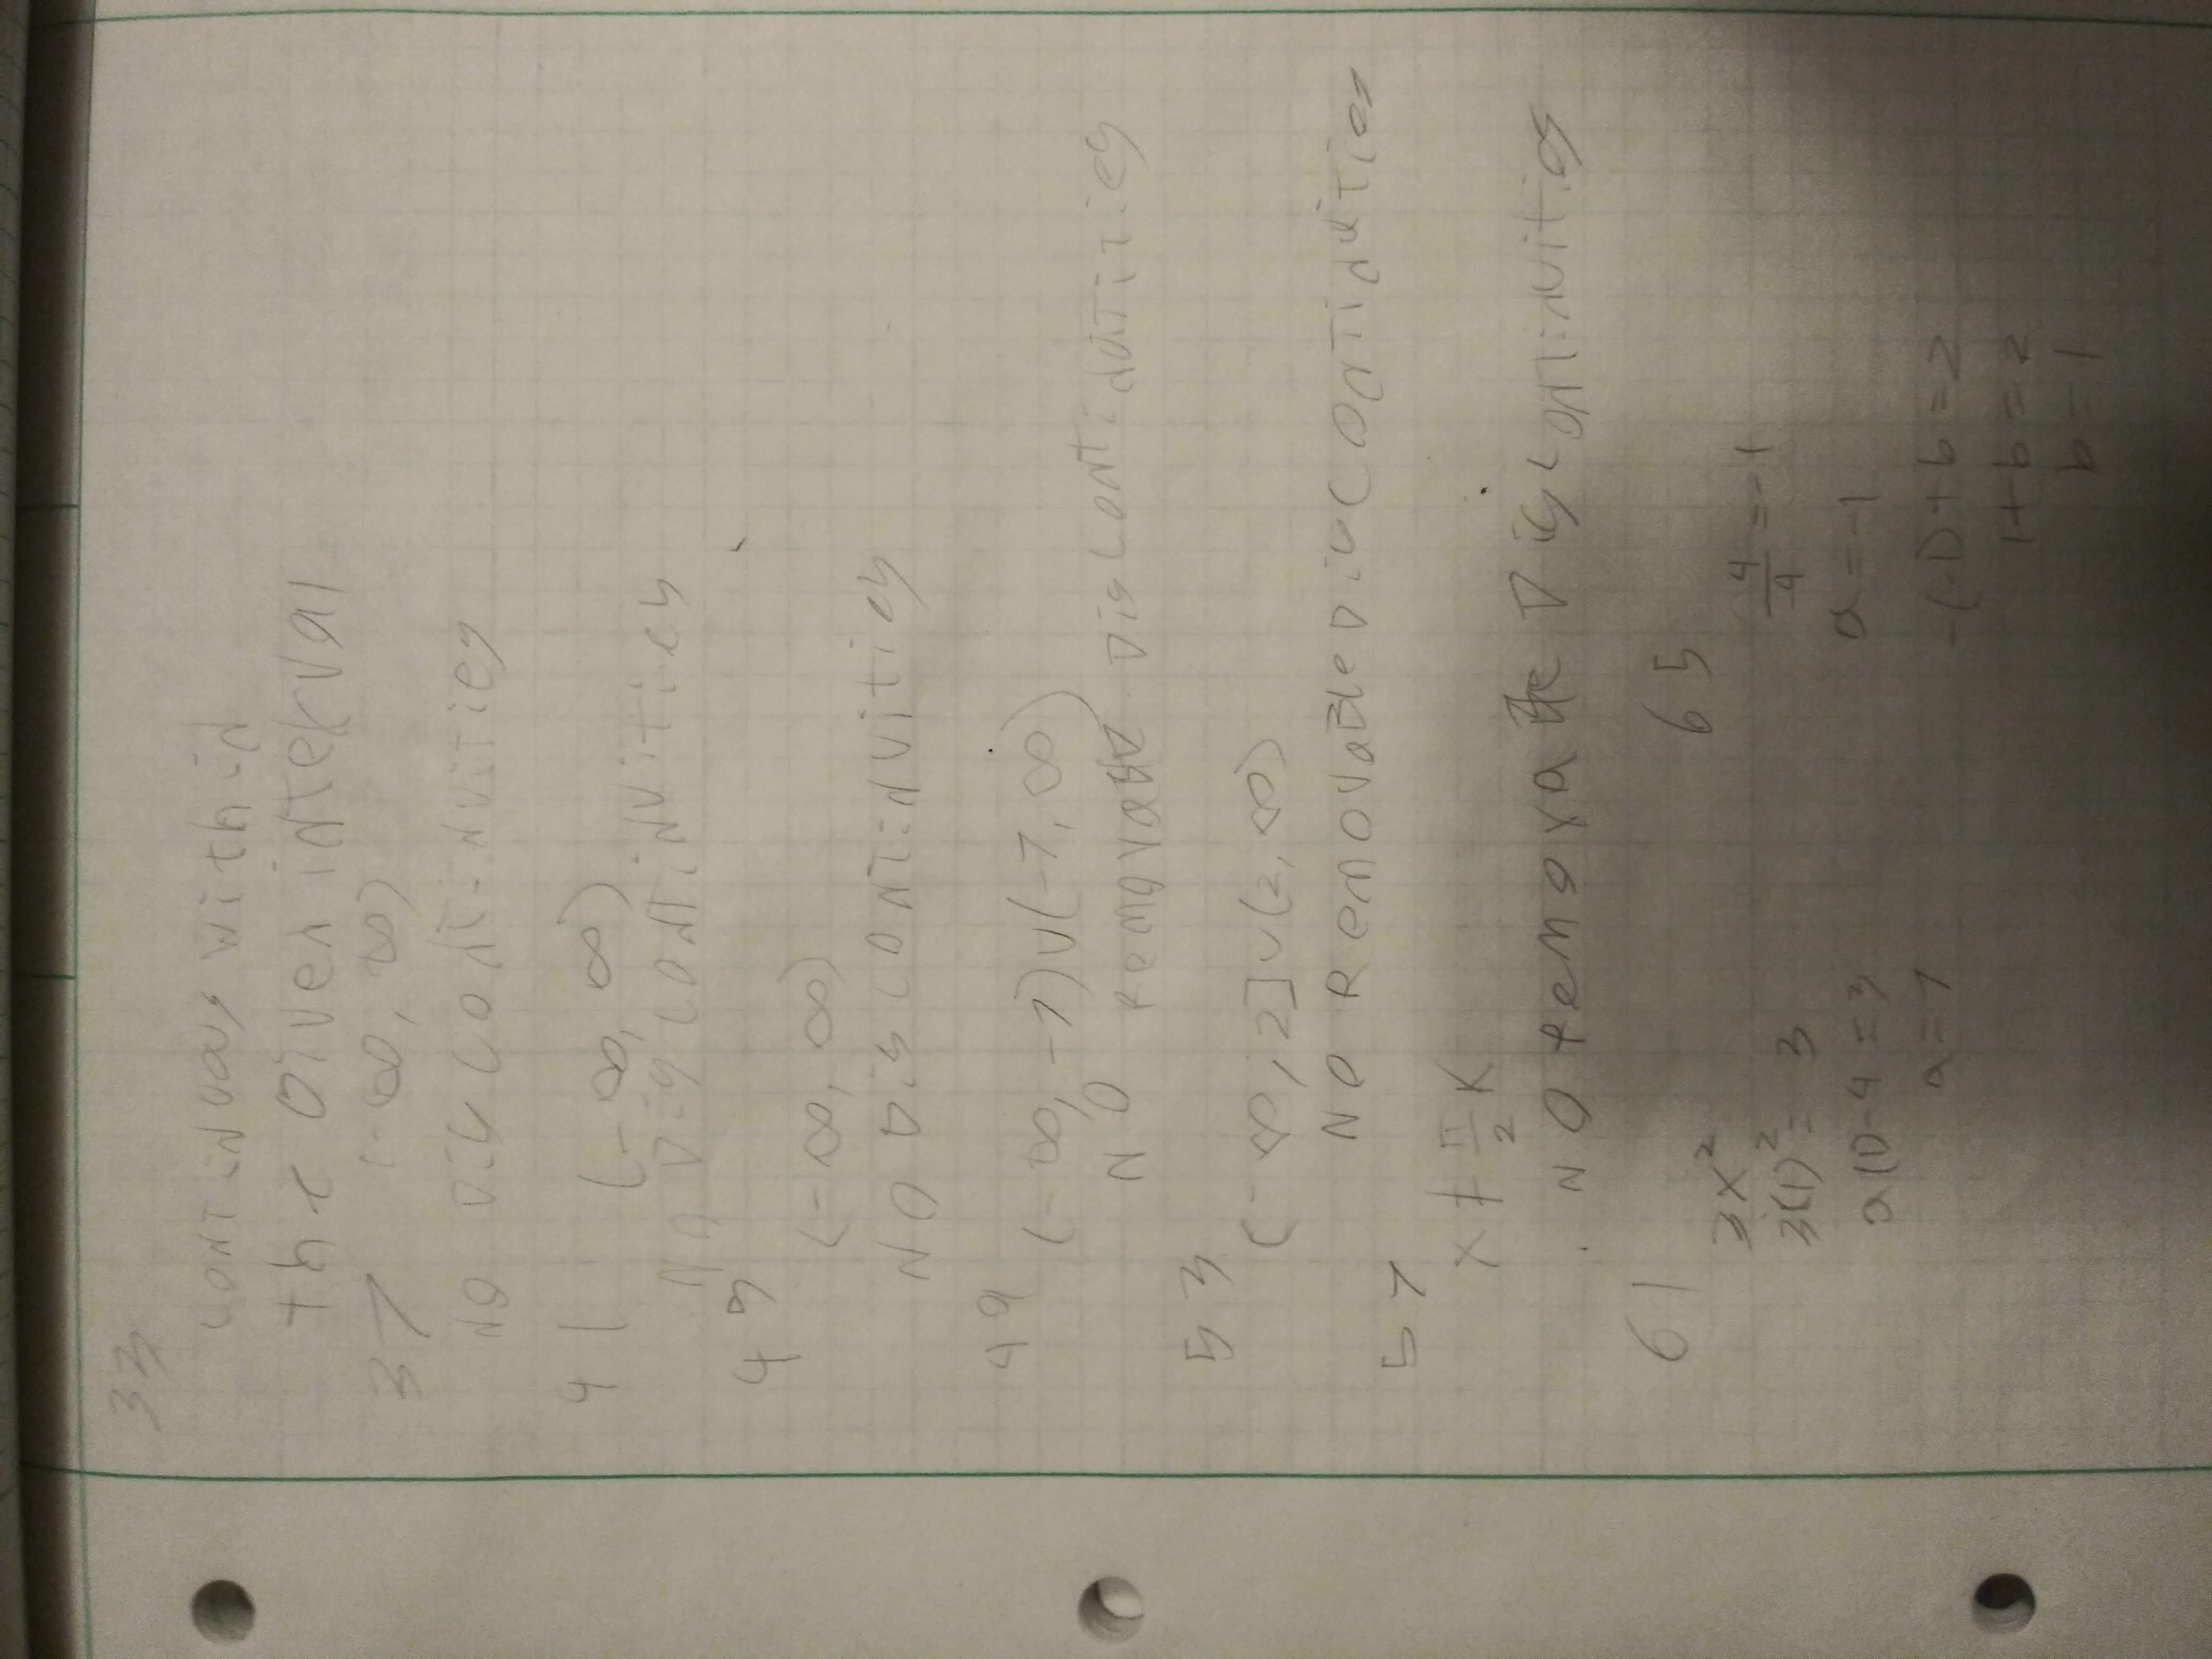 33
continuous within
the Given interval
37 (-∞, ∞)
NO Discontinuities
41 (-∞, ∞)
No Discontinuities
45
(-∞, ∞)
NO Discontinuities
49
(-∞, -7)∪(-7, ∞)
NO Removable Discontinuities
53
(-∞, 2]∪(2, ∞)
NO Removable Discontinuities
57
x ≠ π/2 K
NO removable Discontinuities
61
3x²
3(1)² = 3
a(1)-4 = 3
a = 7
65
-4/4 = -1
a = -1
-(-1)+b = 2
1+b = 2
b = 1